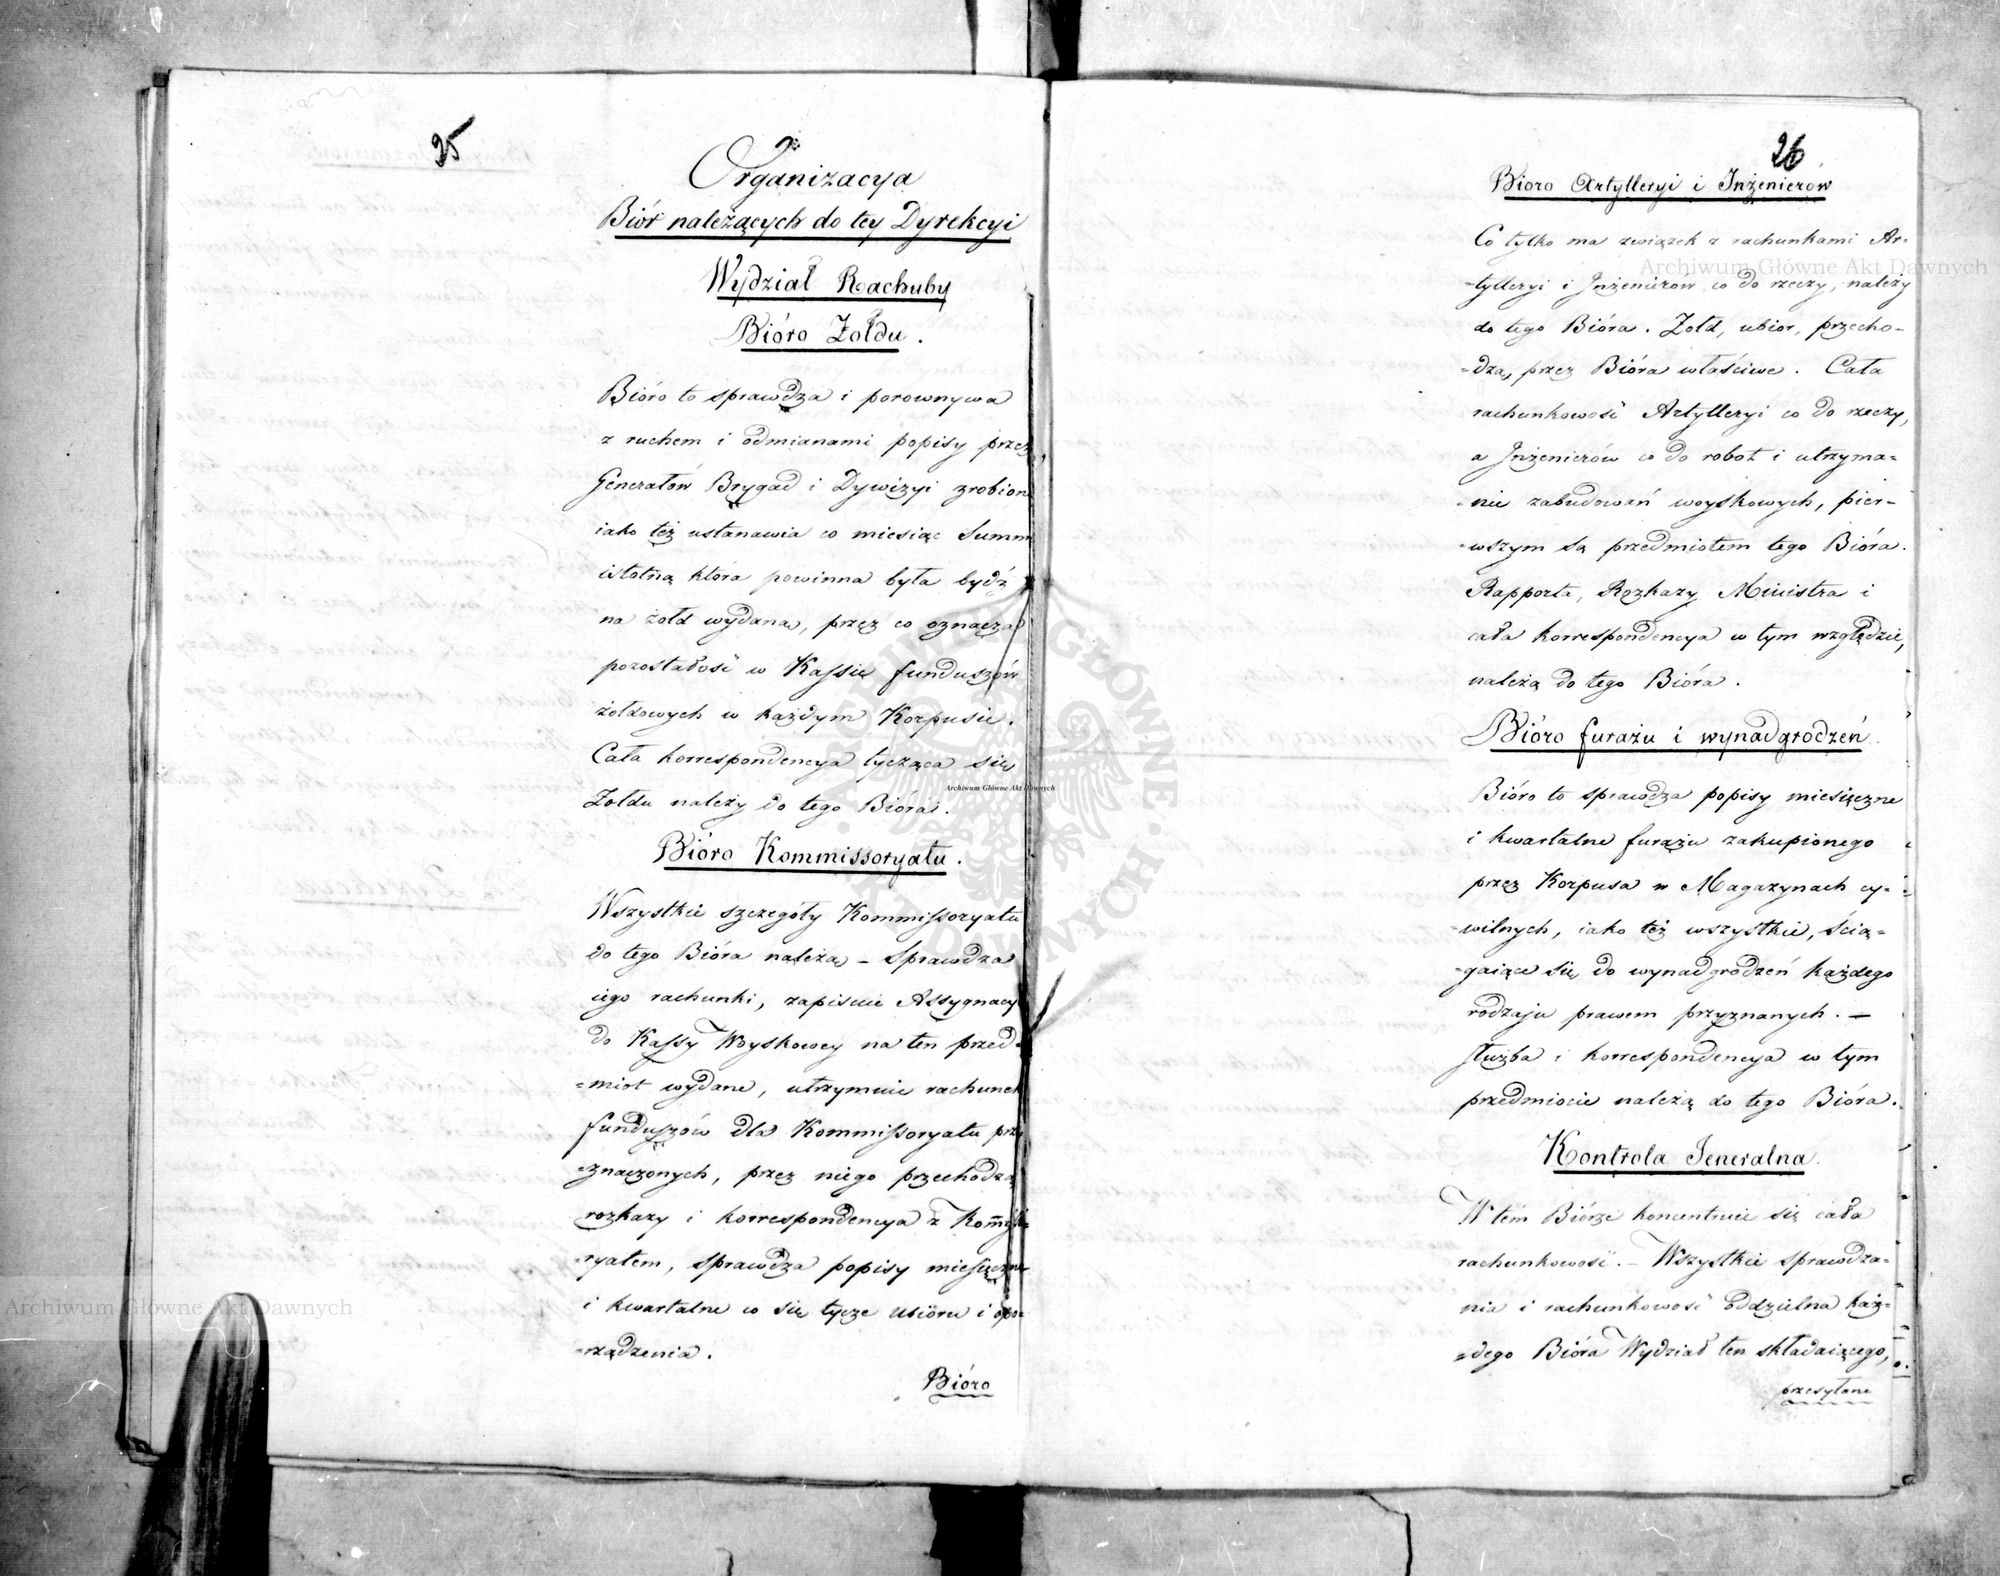 25
Organizacya
Biór należących do tey Dyrekcyi
Wydział Rachuby
Bióro Żołdu.
Bióro to sprawdza i porownywa
z ruchem i odmianami popisy przez
Generałów Brygad i Dywizyi zrobion
iako też ustanawia co miesiąc Summ
istotną która powinna była bydź
na żołd wydana, przez co oznacza
pozostałość w Kassie funduszów
żołdowych w każdym Korpusie.
Cała korrespondencya tycząca się
Żołdu należy do tego Bióra.
Bióro Kommissoryatu.
Wszystkie szczegóły Kommissoryatu
do tego Bióra należą – Sprawdza
iego rachunki, zapisuie Assygnacy
do Kassy Woyskowey na ten przed-
=miot wydane, utrzymuie rachunek
funduszów dla Kommissoryatu prze
=znaczonych, przez niego przechodzą
rozkazy i korrespondencya z Kommisso
=ryatem, sprawdza popisy miesięczne
i kwartalne co się tycze ubióru i opo-
=rządzenia.
Bióro
26
Bióro Artylleryi i Inżenierów
Co tylko ma związek z rachunkami Ar-
=tylleryi i Inżenierów co do rzeczy, należy
do tego Bióra. Żołd, ubior, przecho-
=dzą, przez Bióra właściwe. Cała
rachunkowość Artylleryi co do rzeczy,
a Inżenierów co do robot i utrzyma=
=nie zabudowań woyskowych, pier-
=wszym są przedmiotem tego Bióra.
Rapporta, Rozkazy Ministra i
cała korrespondencya w tym względzie,
należą do tego Bióra.
Bióro furażu i wynadgrodzeń.
Bióro to sprawdza popisy miesięczne
i kwartalne furażu zakupionego
przez Korpusa w Magazynach cy-
=wilnych, iako też wszystkie, ścią=
=gaiące się do wynadgrodzeń każdego
rodzaju prawem przyznanych. –
służba i korrespondencya w tym
przedmiocie należą do tego Bióra.
Kontrola Jeneralna.
W tem Biórze koncentruie się cała
rachunkowość. – Wszystkie sprawdza=
nia i rachunkowość oddzielna każ=
=dego Bióra Wydział ten składaiącego,
przesyłane
Archiwum Główne Akt Dawnych
Archiwum Główne Akt Dawnych
Archiwum Główne Akt Dawnych
ARCHIWUM GŁÓWNE AKT DAWNYCH